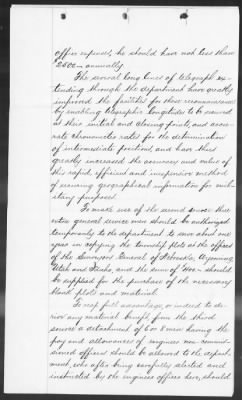 office expenses, he should have not less than
$2500— annually.
The several long lines of telegraph ex-
tending through the department have greatly
improved the facilities for these reconnaissances
by enabling telegraphic longitudes to be secured
at their initial and closing points, and accu-
rate chronometer rates for the determination
of intermediate positions, and have thus
greatly increased the accuracy and value of
this rapid, efficient and inexpensive method
of securing geographical information for mil-
itary purposes.
To make use of the second source three
extra general service men should be authorized
temporarily to the department to serve about one
year in copying the township plats at the offices
of the Surveyors General of Nebraska, Wyoming,
Utah and Idaho, and the sum of $100— should
be supplied for the purchase of the necessary
blank plats and material.
To reap full advantage, or indeed to de-
rive any material benefit from the third
source a detachment of 6 or 8 men having the
pay and allowances of engineer non commis-
sioned officers should be allowed to the depart-
ment, who after being carefully selected and
instructed by the engineer officer here, should